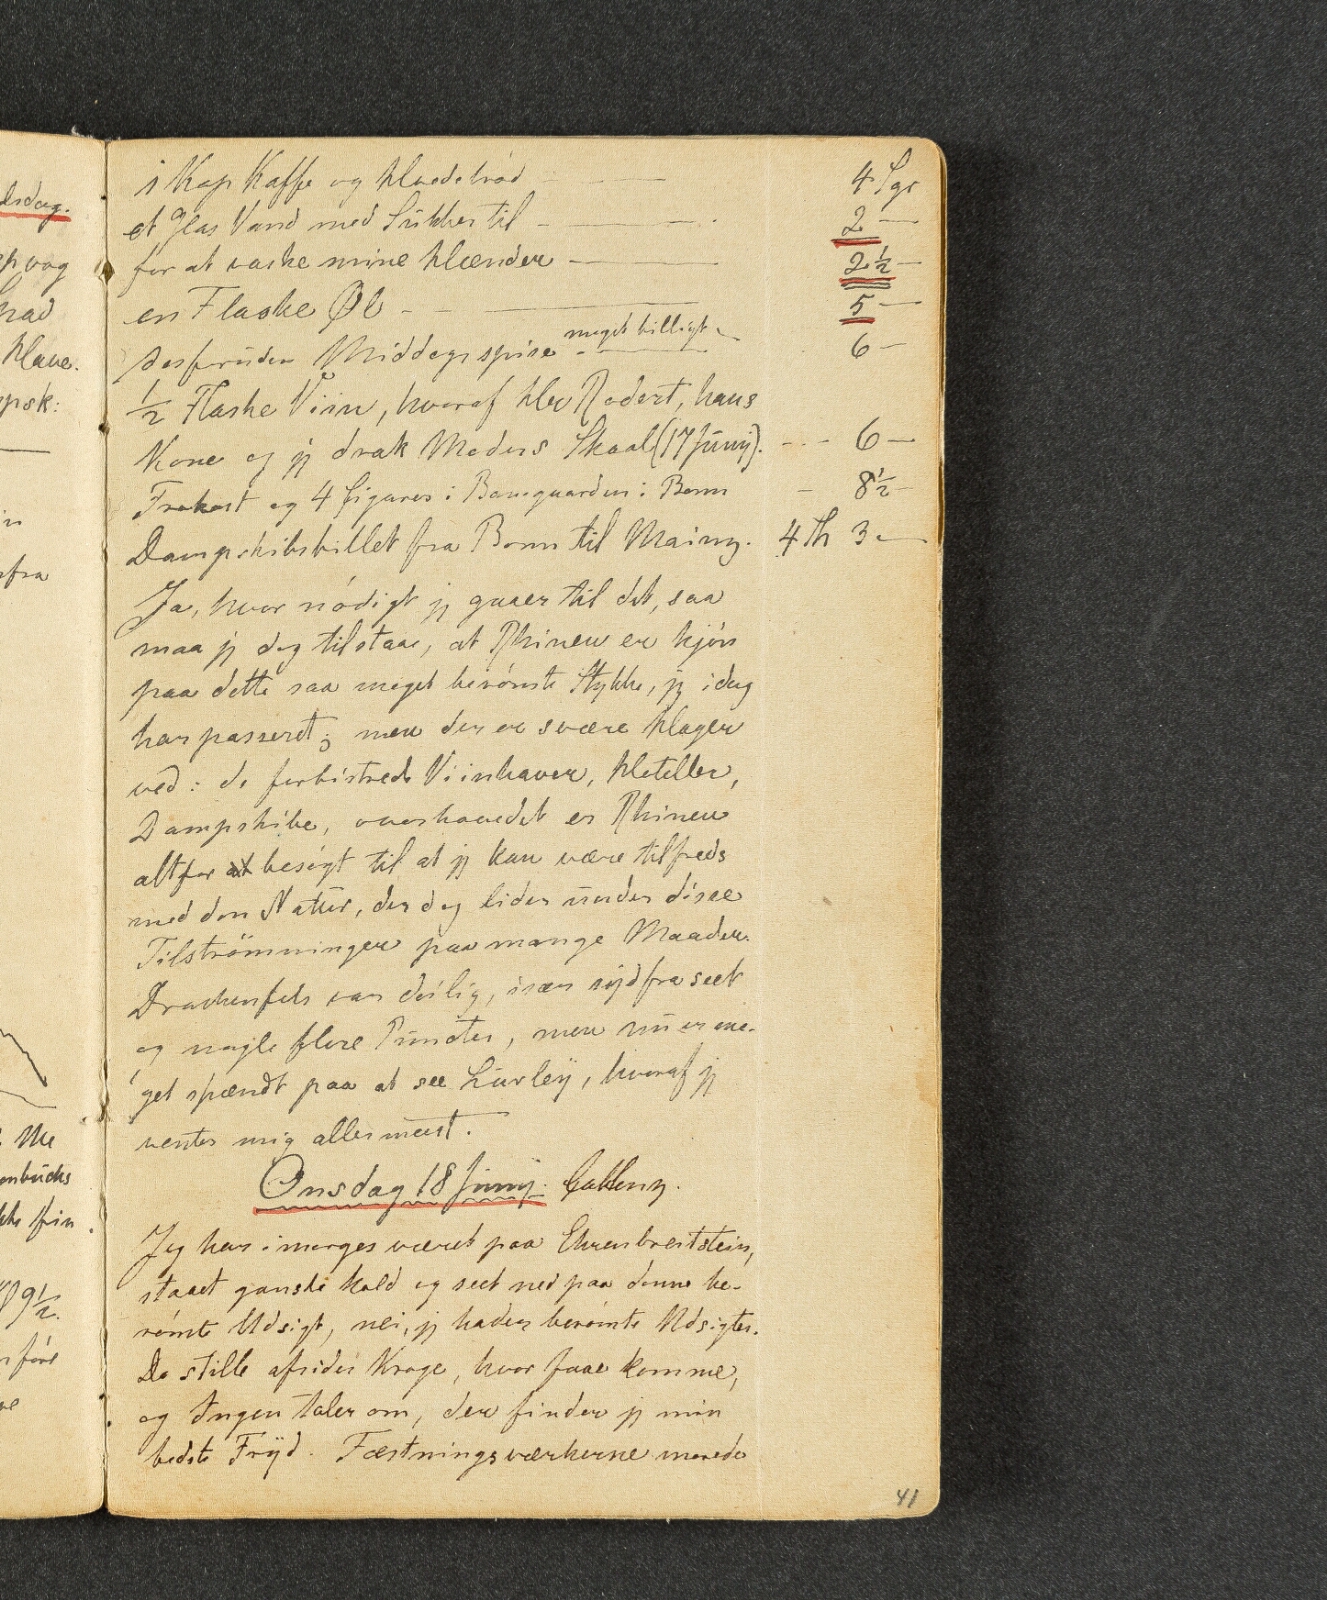 1 Kop Kaffe og Hvedebrød — 4 Sgr
et Glas Vand med Sukker til — 2 —
for at vaske mine Hænder — 2½ —
en Flaske Øl — 5 —
desforuden Middagsspise meget billigt — 6 —
½ Flaske Viin, hvoraf Hr Rodert, hans
Kone og jeg drak Moders Skaal (17 Junij). --- 6 —
Frokost og 4 Sigarer i Banegaarden i Bonn — 8½ —
Dampskibsbillet fra Bonn til Mainz. 4 Th 3 —
Ja, hvor nödigt jeg gaaer til det, saa
maa jeg dog tilstaae, at Rhinen er kjön
paa dette saa meget berömte Stykke, jeg idag
har passeret; men der er svære Klager
ved: de forbistrede Viinhaver, Hoteller,
Dampskibe, overhovedet er Rhinen
altfor at besögt til at jeg kan være tilfreds
med den Natur, der dog lider under disse
Tilströmninger paa mange Maader.
Drachenfels var deilig, især sydfra seet
og nogle flere Puncter, men nu er me-
get spændt paa at see Lurley, hvoraf jeg
venter mig allermeest.
Onsdag 18 Junij. Coblenz.
Jeg har imorges været paa Ehrenbreitstein,
staaet ganske kold og seet ned paa denne be-
römte Udsigt, nei, jeg hader berömte Udsigter.
De stille afsides Kroge, hvor faae komme,
og Ingen taler om, der finder jeg min
bedste Fryd. Fæstningsværkerne morede
41